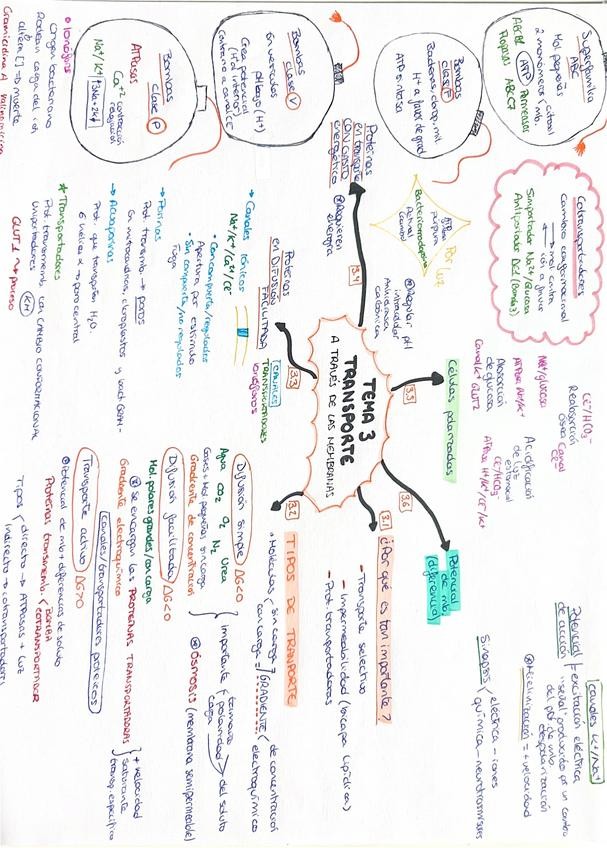 TEMA 3
TRANSPORTE
A TRAVÉS DE LAS MEMBRANAS
3.1
¿Por qué es tan importante?
- Transporte selectivo
- Impermeabilidad (bicapa lipídica)
- Prot. transportadoras
3.2
TIPOS DE TRANPORTE
• Moléculas
sin carga
con carga
GRADIENTE
de concentración
electroquímico
Difusión simple ΔG<0
Agua CO2 O2 N2 Urea
Gases + Mol pequeñas sin carga
Gradiente de concentración
Importante
tamaño
polaridad
carga
del soluto
ÓSMOSIS (membrana semipermeable)
Difusión facilitada ΔG<0
Mol. polares grandes/con carga
se encargan las PROTEÍNAS TRANSPORTADORAS
Gradiente electroquímico
+ velocidad
saturante
transp. específico
canales/transportadores pasivos
Transporte activo ΔG>0
Potencial de mb + diferencias de soluto
Proteínas transmemb.
BOMBA
COTRANSPORTADOR
Tipos
directo → ATPasas + luz
indirecto → cotransportadores
3.3
Proteínas
en DIFUSIÓN
FACILITADA
CANALES
TRANSPORTADORES
Ionóforos
• Canales iónicos
Na+/K+/Ca2+/Cl-
• Con compuerta/regulados
Apertura por estímulo
• Sin compuerta/no regulados
Fuga
→ Porinas
Prot transmemb. → poros
En mitocondrias, cloroplastos y bact GRAM-
→ Acuaporinas
Prot que transportan H2O
6 hélices α → poro central
★ Transportadores
Prot transmemb con CAMBIO CONFORMACIONAL
Uniportadores
GLUT1 → pasivo
KM
• Ionóforos
Origen bacteriano
Rodean carga del ión
altera [ ] → muerte
Gramicidina A Valinomicina
3.4
Proteínas
en transporte
CON GASTO
energético
Requieren
energía
Bombas
clase P
ATPasas
Ca+2 contracción
relajación
Na+/K+
Bombas
clase V
En vacuolas
pH bajo (H+)
Crea potencial
(H+ al interior)
Bombas
clase F
Bacterias, clorop, mit
H+ a favor de grad
ATP sintasa
Superfamilia
ABC
Mol pequeñas
2 monómeros
citosol
mb.
ATP
Flipasas ABCC7
Por luz
Bacteriorodopsina
Retinal
Cotransportadores
Cambio conformacional
mol contra
ión a favor
Simportador Na+/Glucosa
Regular pH
intracelular
Anhidrasa
carbónica
3.5
Células polarizadas
Absorción
de glucosa
Na+/glucosa
ATPasa Na+/K+
Canal K+ GLUT2
Acidificación
estomacal
Cl-/HCO3-
ATPasa H+/K+/Cl-/K+
Reabsorción
ósea
Cl-/HCO3-
Canal
Cl-
3.6
Potencial
de mb.
(diferencia)
canales K+/Na+
Potencial
de acción
= excitación eléctrica
señal producida por un cambio
del pot de mb
despolarización
Mielinización = + velocidad
Sinapsis
eléctrica - iones
química - neurotransmisores